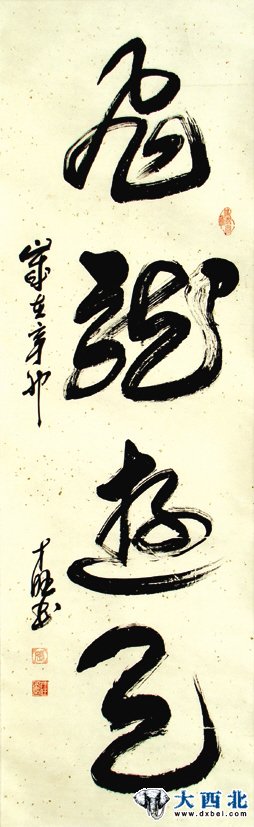 飛龍遊天
歲在辛卯
大西北
www.dxbei.com